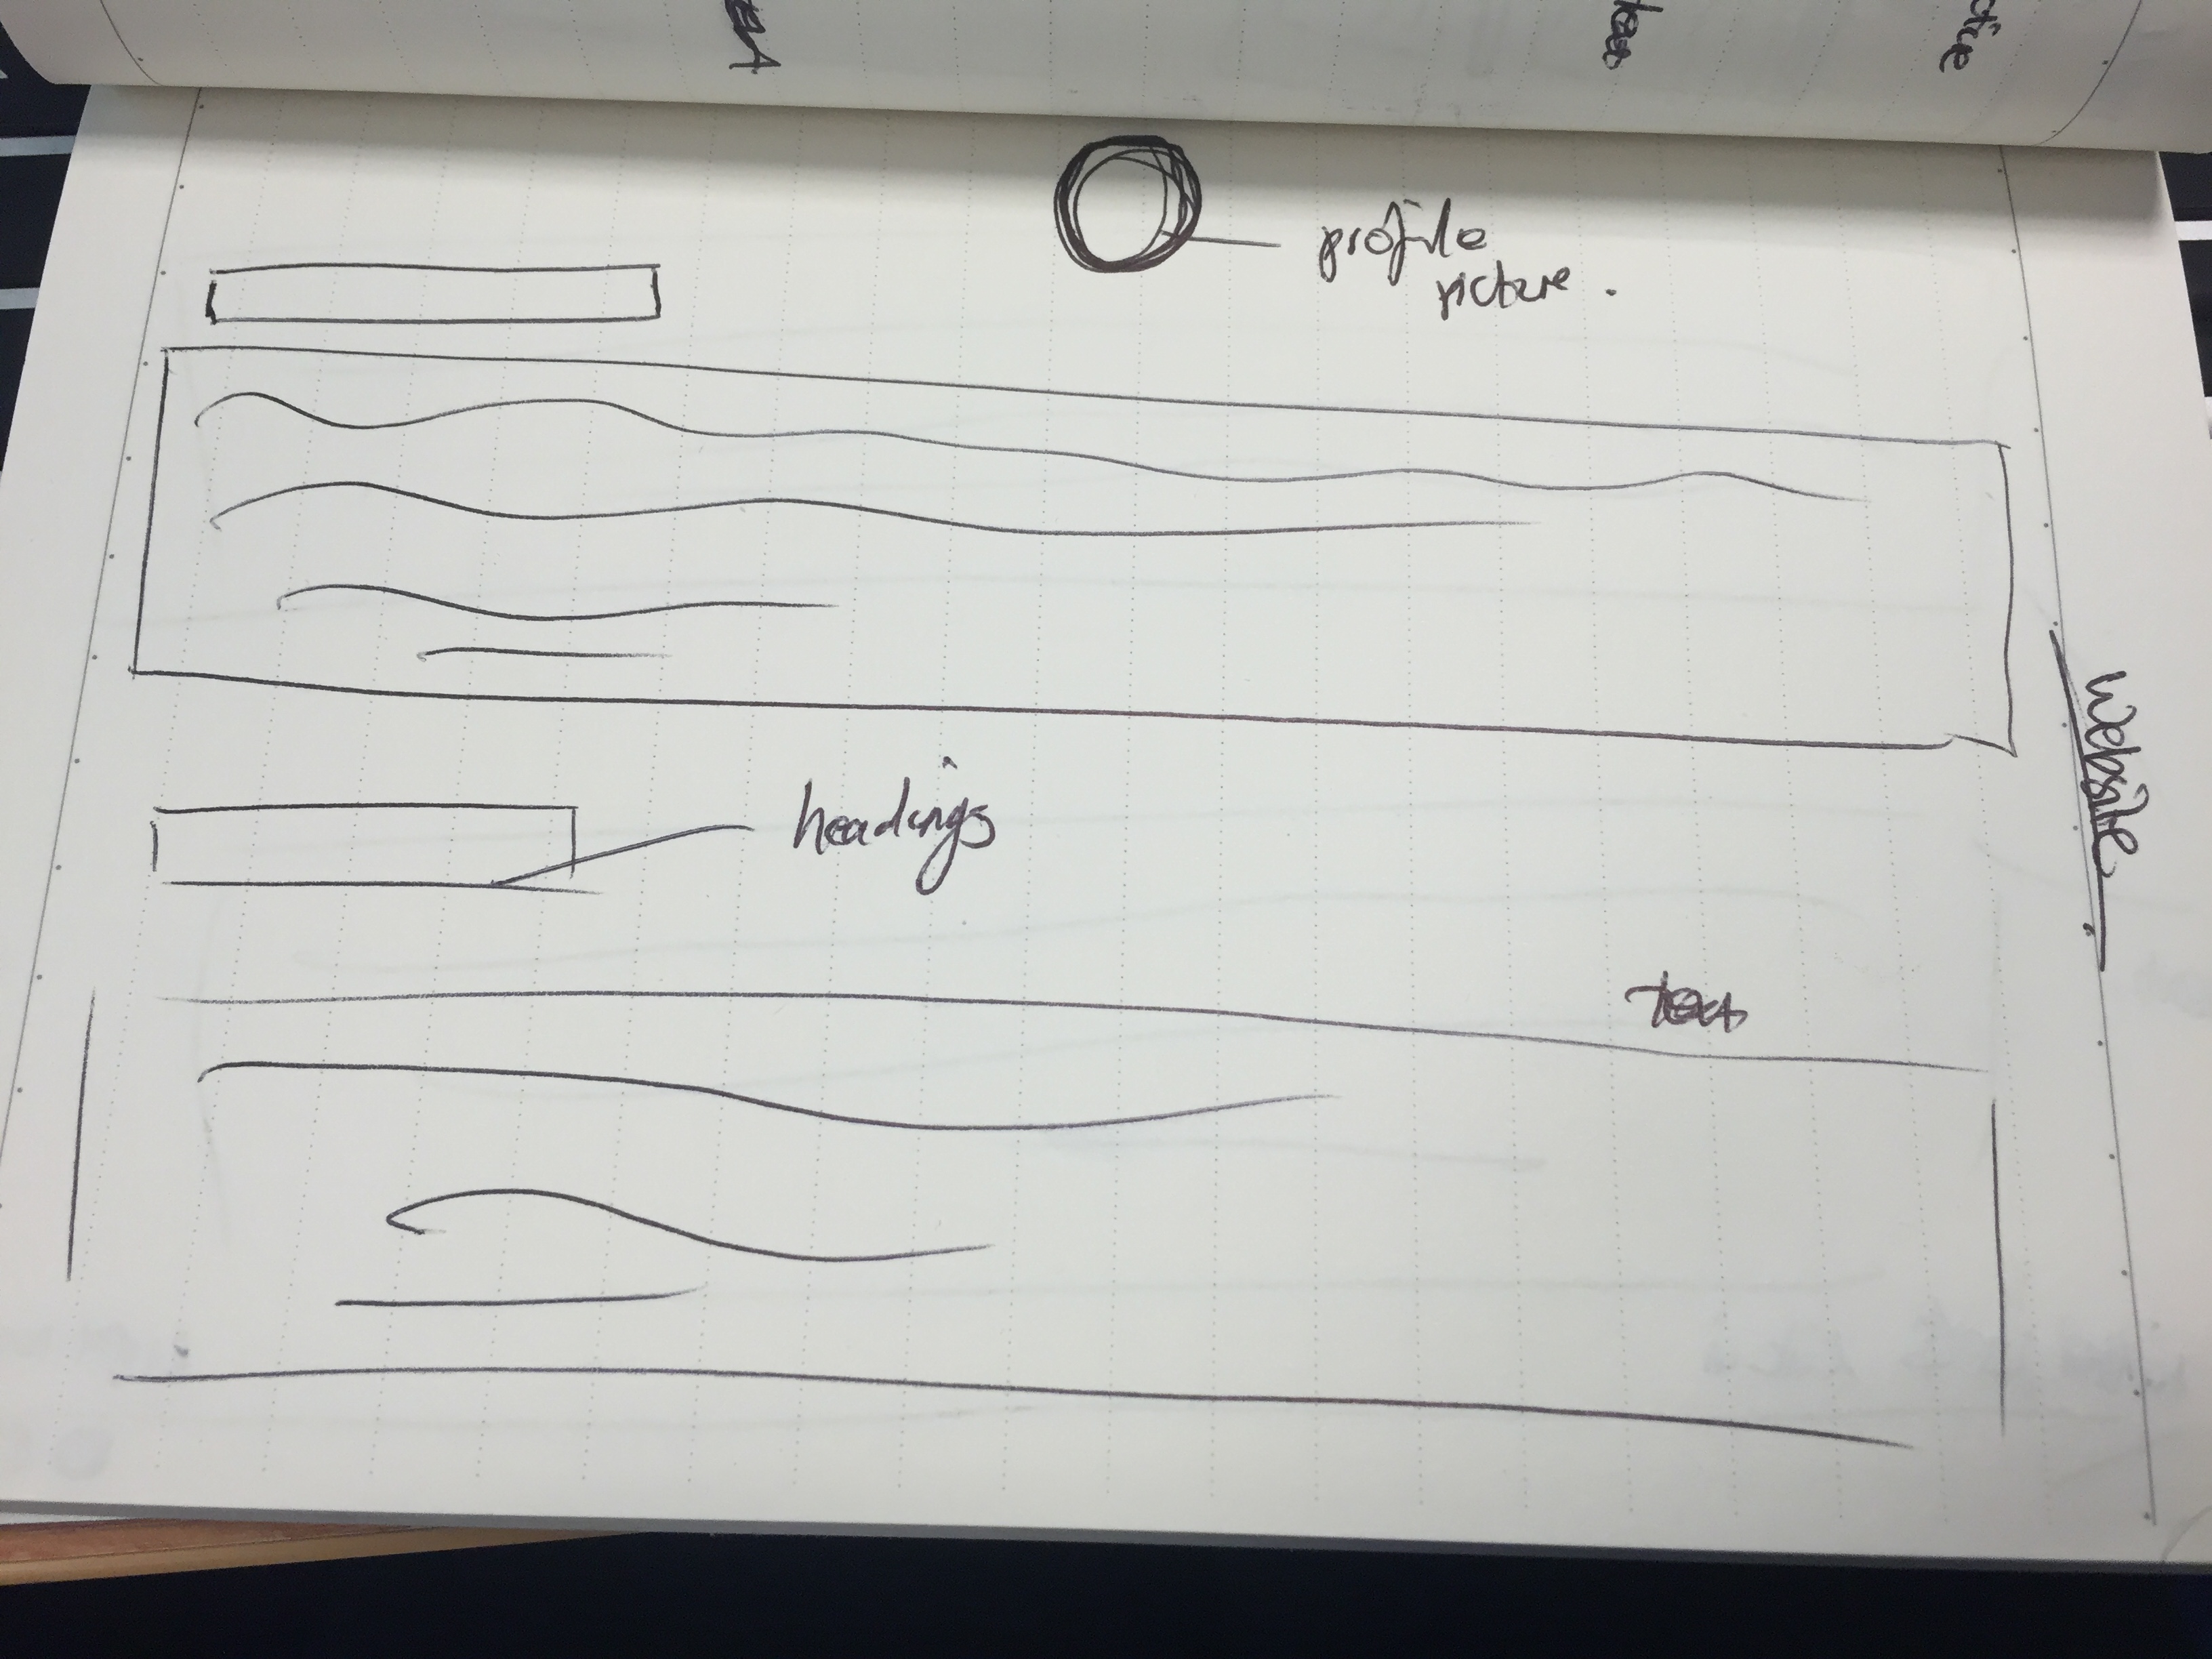 profile
picture.
headings
Text
website